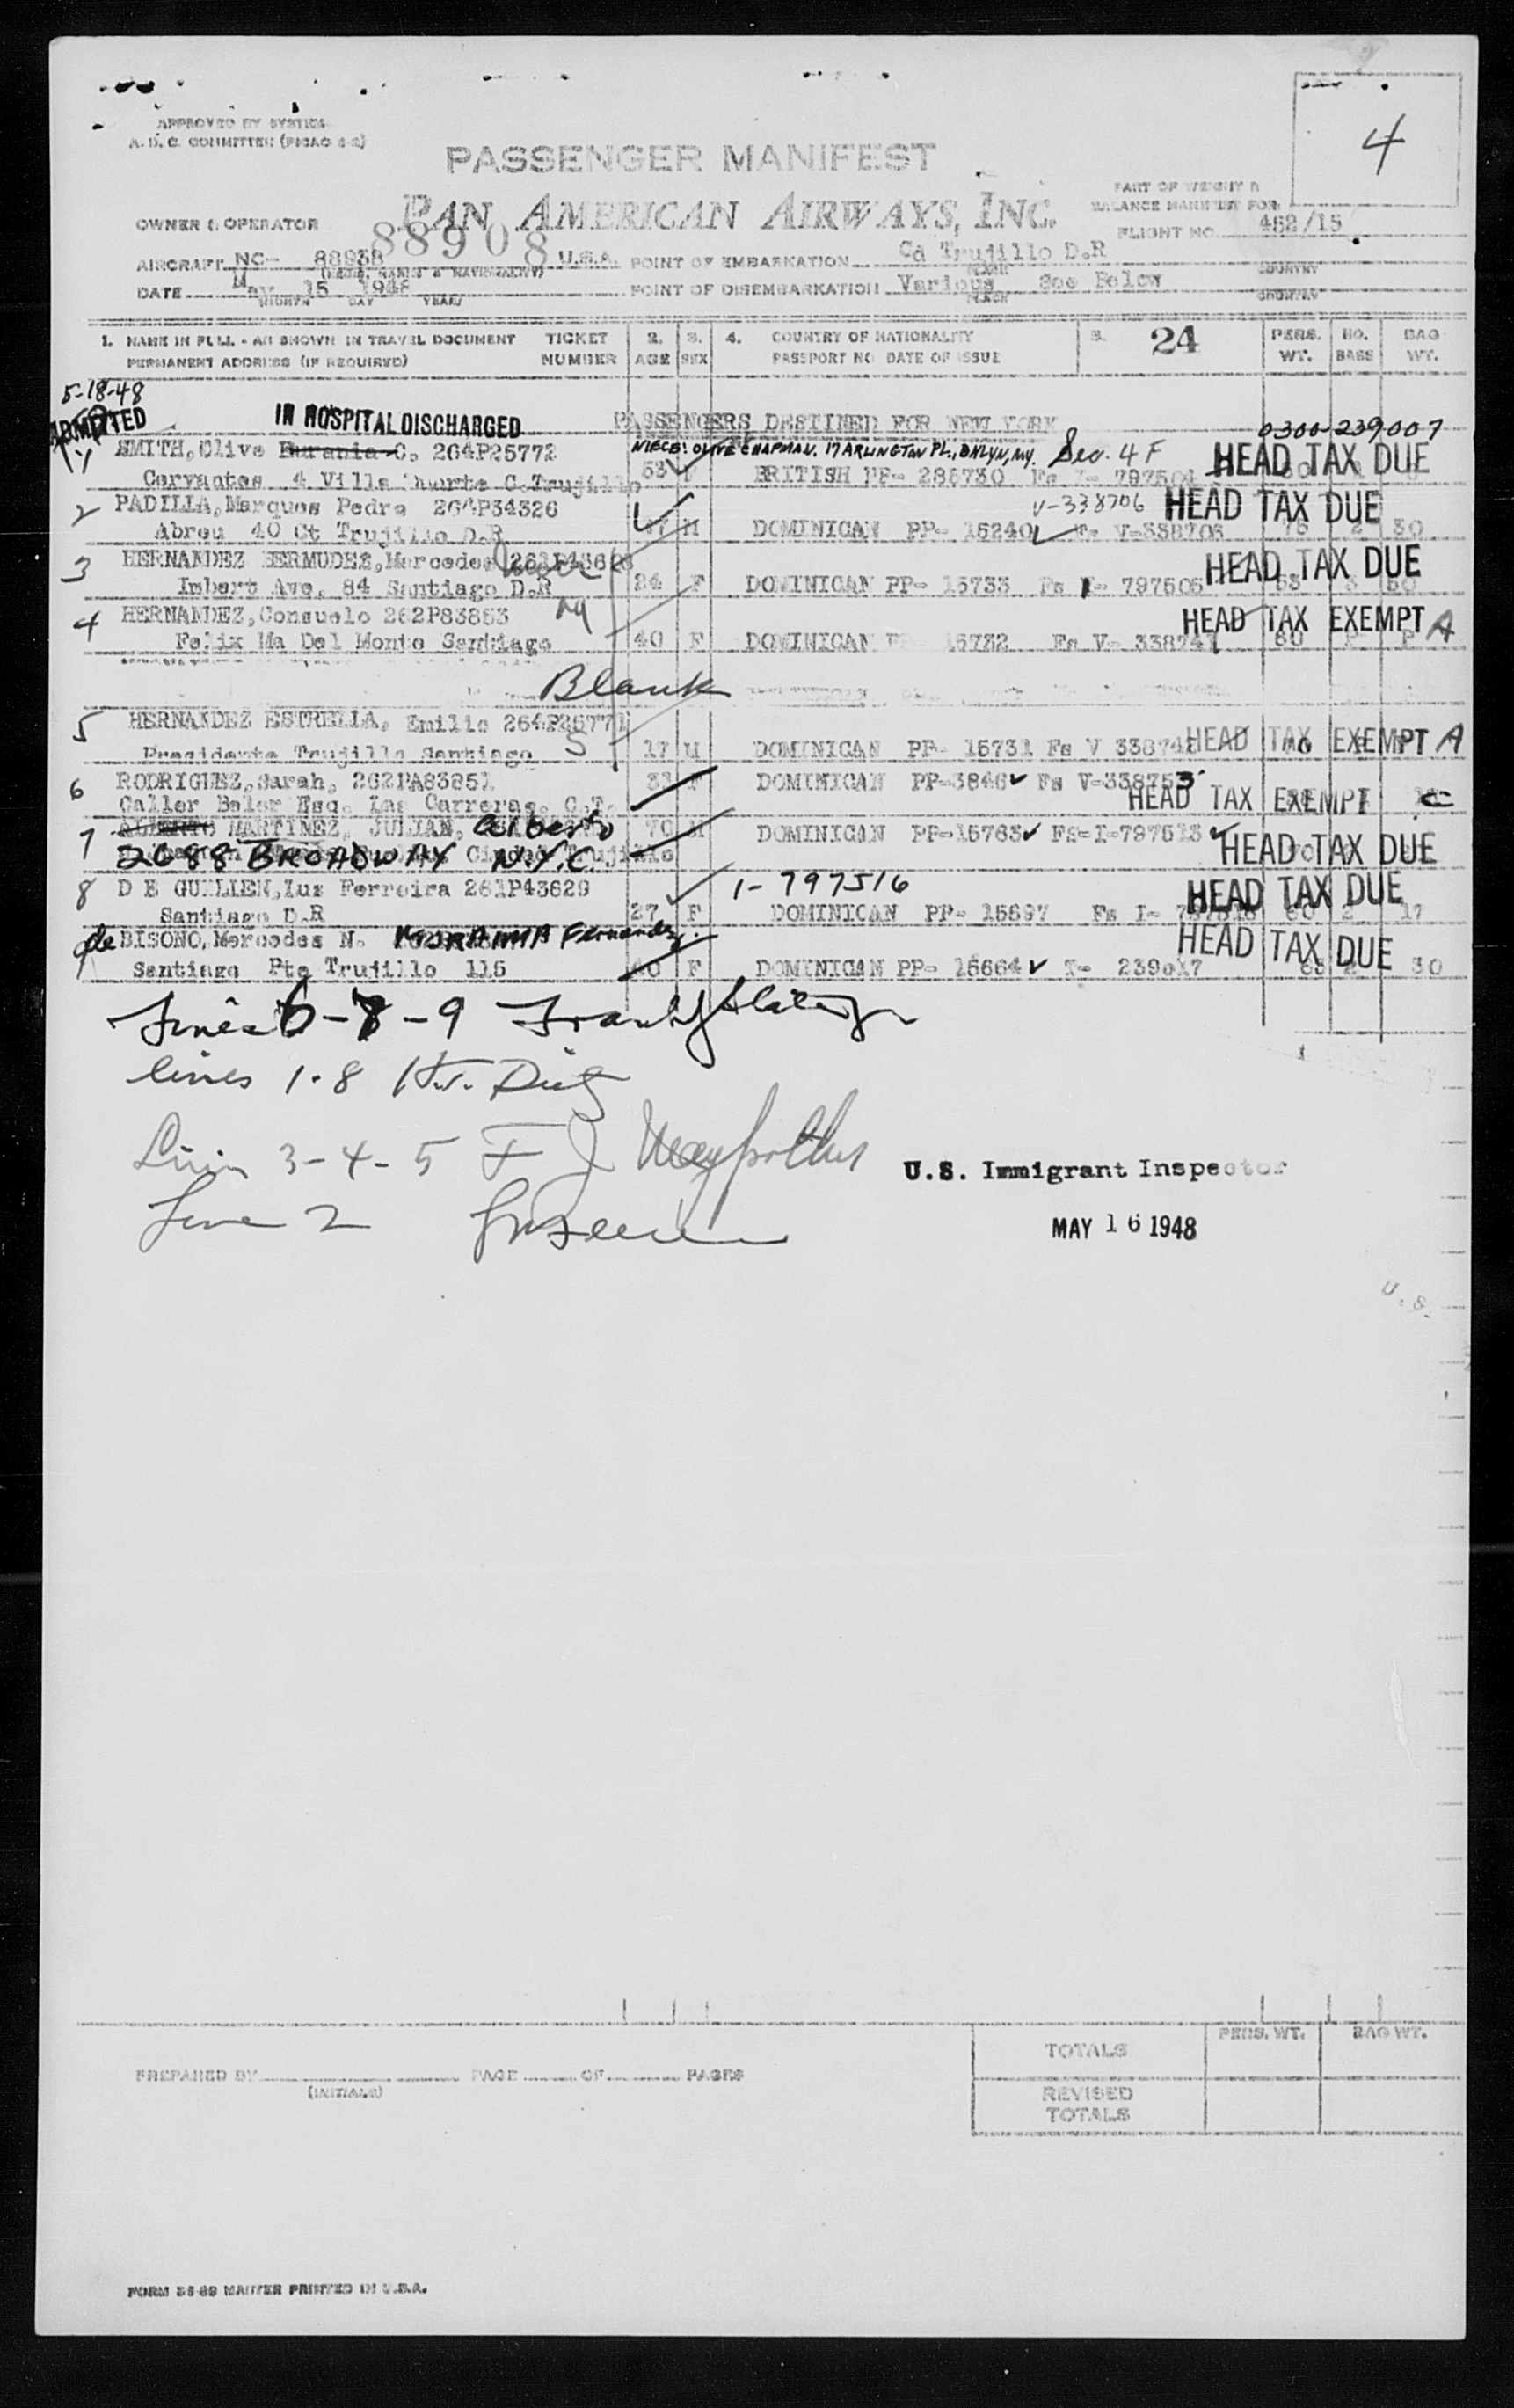 4
APPROVED BY SYSTEM
A. D. C. COMMITTEE (PICAO 2-2)
PASSENGER MANIFEST
PART OF WEIGHT &
BALANCE MANIFEST FOR
OWNER & OPERATOR PAN AMERICAN AIRWAYS, INC.
FLIGHT NO. 462/15
88908
AIRCRAFT NC- 88938 U.S.A. POINT OF EMBARKATION Cd Trujillo D.R
(MAKE, MARKS & NATIONALITY) PLACE COUNTRY
DATE May 15 1948 POINT OF DISEMBARKATION Various See Below
MONTH DAY YEAR PLACE COUNTRY
1. NAME IN FULL - AS SHOWN IN TRAVEL DOCUMENT TICKET 2. 3. 4. COUNTRY OF NATIONALITY 5. 24 PERS. NO. BAG
PERMANENT ADDRESS (IF REQUIRED) NUMBER AGE SEX PASSPORT NO DATE OF ISSUE WT. BAGS WT.
5-18-48
ADMITTED IN HOSPITAL DISCHARGED PASSENGERS DESTINED FOR NEW YORK 0300-239007
SMITH, Olive C. 264P25772 NIECE: OLIVE CHAPMAN. 17 ARLINGTON PL., BKLYN, NY. Sec. 4 F HEAD TAX DUE
Cervantes 4 Villa Duarte C. Trujillo 53 F BRITISH PP- 285730 Fs I- 797504
2 PADILLA, Marques Pedro 264P34326 V-338706 HEAD TAX DUE
Abreu 40 Ct Trujillo D.R M DOMINICAN PP- 15240 Fs V-338706 2 30
3 HERNANDEZ BERMUDEZ, Mercedes HEAD TAX DUE
Imbert Ave. 84 Santiago D.R 24 F DOMINICAN PP- 15733 Fs I- 797505 53
4 HERNANDEZ, Consuelo 262P83853 HEAD TAX EXEMPT A
Felix Ma Del Monte Santiago 40 F DOMINICAN 15732 Fs V- 338741 60
Blank
5 HERNANDEZ ESTRELLA, Emilio 264P26771
Presidente Trujillo Santiago 17 M DOMINICAN PP- 15731 Fs V 338742 HEAD TAX EXEMPT A
6 RODRIGUEZ, Sarah, 33 F DOMINICAN PP-3846 Fs V-338753
Caller Beler Esq. Las Carreras, C.T. HEAD TAX EXEMPT C
7 ALBERTO MARTINEZ, JULIAN, Alberto 70 M DOMINICAN PP-15763 Fs-I-797513
2088 BROADWAY N.Y.C. Trujillo HEAD TAX DUE
8 DE GUILLEN, Luz Ferreira 261P43629 1-797516 HEAD TAX DUE
Santiago D.R 27 F DOMINICAN PP- 15697 Fs I- 60 2 17
9 de BISONO, Mercedes N. Fernandez HEAD TAX DUE
Santiago Pte Trujillo 115 40 F DOMINICAN PP- 15664 I- 239017 63 2 30
Lines 6-7-9
lines 1-8
Lines 3-4-5 F J
U.S. Immigrant Inspector
Line 2
MAY 16 1948
U.S.
PREPARED BY PAGE OF PAGES
(INITIALS)
PERS. WT. BAG WT.
TOTALS
REVISED
TOTALS
FORM 36-89 MASTER PRINTED IN U.S.A.